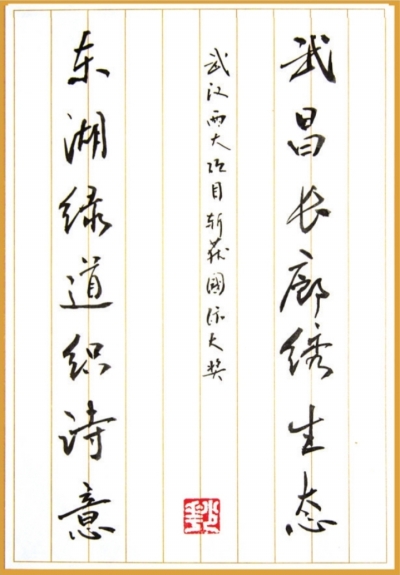 武昌长廊绣生态
武汉两大项目斩获國际大奖
东湖绿道织诗意